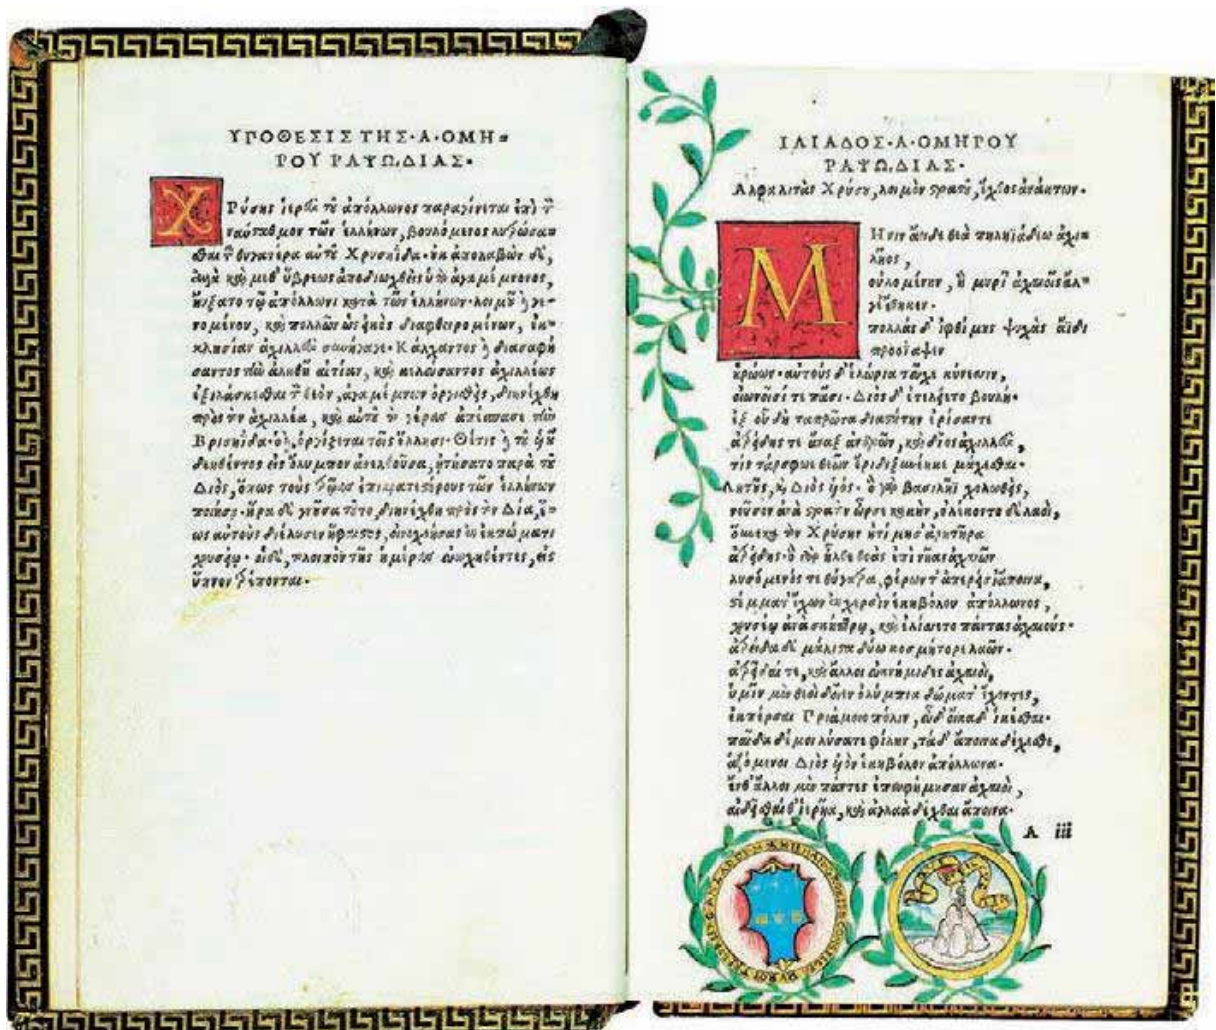 ΥΠΟΘΕΣΙΣ ΤΗΣ·Α·ΟΜΗ=
ΡΟΥ ΡΑΨΩΔΙΑΣ·
ΧΡύσης ἱερεὺς τοῦ ἀπόλλωνος παραγίνεται ἐπὶ τὸν
ναύσταθμον τῶν ἑλλήνων, βουλόμενος λυτρώσα
σθαι τὴν θυγατέρα αὐτοῦ Χρυσηΐδα· οὐκ ἀπολαβὼν δὲ,
ἀλλὰ καὶ μεθ' ὕβρεως ἀποδιωχθεὶς ὑπὸ ἀγαμέμνονος,
ηὔξατο τῷ ἀπόλλωνι κατὰ τῶν ἑλλήνων· λοιμοῦ δὲ γε-
νομένου, καὶ πολλῶν ὡς εἰκὸς διαφθειρομένων, ἐκ-
κλησίαν ἀχιλλεὺς συνήγαγε· Κάλχαντος δὲ διασαφή
σαντος τὴν ἀληθῆ αἰτίαν, καὶ κελεύσαντος ἀχιλλέως
ἐξιλάσκεσθαι τὸν θεὸν, ἀγαμέμνων ὀργισθεὶς, διηνέχθη
πρὸς τὸν ἀχιλλέα, καὶ αὐτοῦ τὸ γέρας ἀπέσπασε τὴν
Βρισηΐδα· ὀργίζεται τοῖς ἕλλησι· Θέτις δὲ
δεηθέντος εἰς ὄλυμπον ἀνελθοῦσα, ᾐτήσατο παρὰ τοῦ
Διὸς, ὅπως τοὺς τρῶας ἐπικρατεστέρους τῶν ἑλλήνων
ποιήσῃ· ἥρα δὲ γνοῦσα τοῦτο, διηνέχθη πρὸς τὸν Δία, ἕ-
ως αὐτοὺς διέλυσεν ἥφαιστος, οἰνοχοήσας ἐν ἐκπώματι
χρυσέῳ· οἱ δὲ, τὸ λοιπὸν τῆς ἡμέρας εὐωχηθέντες, εἰς
ὕπνον τρέπονται·
ΙΛΙΑΔΟΣ·Α·ΟΜΗΡΟΥ
ΡΑΨΩΔΙΑΣ·
Αλφα λιτὰς Χρύσου, λοιμὸν στρατοῦ, ἔχθος ἀνάκτων·
ΜΗνιν ἄειδε θεὰ πηληϊάδεω ἀχιλ
λῆος,
οὐλομένην, ἣ μυρί' ἀχαιοῖς ἄλ=
γε' ἔθηκεν·
πολλὰς δ' ἰφθίμους ψυχὰς ἄϊδι
προΐαψεν
ἡρώων· αὐτοὺς δ' ἑλώρια τεῦχε κύνεσσιν,
οἰωνοῖσί τε πᾶσι· Διὸς δ' ἐτελείετο βουλή·
ἐξ οὗ δὴ ταπρῶτα διαστήτην ἐρίσαντε
ἀτρείδης τε ἄναξ ἀνδρῶν, καὶ δῖος ἀχιλλεὺς,
τίς τάρ σφωε θεῶν ἔριδι ξυνέηκε μάχεσθαι·
Λητοῦς, καὶ Διὸς υἱός· ὁ γὰρ βασιλῆϊ χολωθεὶς,
νοῦσον ἀνὰ στρατὸν ὦρσε κακὴν, ὀλέκοντο δὲ λαοὶ,
οὕνεκα τὸν Χρύσην ἠτίμησ' ἀρητῆρα
ἀτρείδης· ὁ γὰρ ἦλθε θοὰς ἐπὶ νῆας ἀχαιῶν
λυσόμενός τε θύγατρα, φέρων τ' ἀπερείσι' ἄποινα,
στέμματ' ἔχων ἐν χερσὶν ἑκηβόλου ἀπόλλωνος,
χρυσέῳ ἀνὰ σκήπτρῳ, καὶ ἐλίσσετο πάντας ἀχαιούς·
ἀτρείδα δὲ μάλιστα δύω κοσμήτορε λαῶν·
ἀτρεῖδαί τε, καὶ ἄλλοι ἐϋκνήμιδες ἀχαιοὶ,
ὑμῖν μὲν θεοὶ δοῖεν ὀλύμπια δώματ' ἔχοντες,
ἐκπέρσαι Πριάμοιο πόλιν, εὖ δ' οἴκαδ' ἱκέσθαι·
παῖδα δέ μοι λύσατε φίλην, τὰ δ' ἄποινα δέχεσθε,
ἁζόμενοι Διὸς υἱὸν ἑκηβόλον ἀπόλλωνα·
ἔνθ' ἄλλοι μὲν πάντες ἐπευφήμησαν ἀχαιοὶ,
αἰδεῖσθαί θ' ἱερῆα, καὶ ἀγλαὰ δέχθαι ἄποινα·
A iii